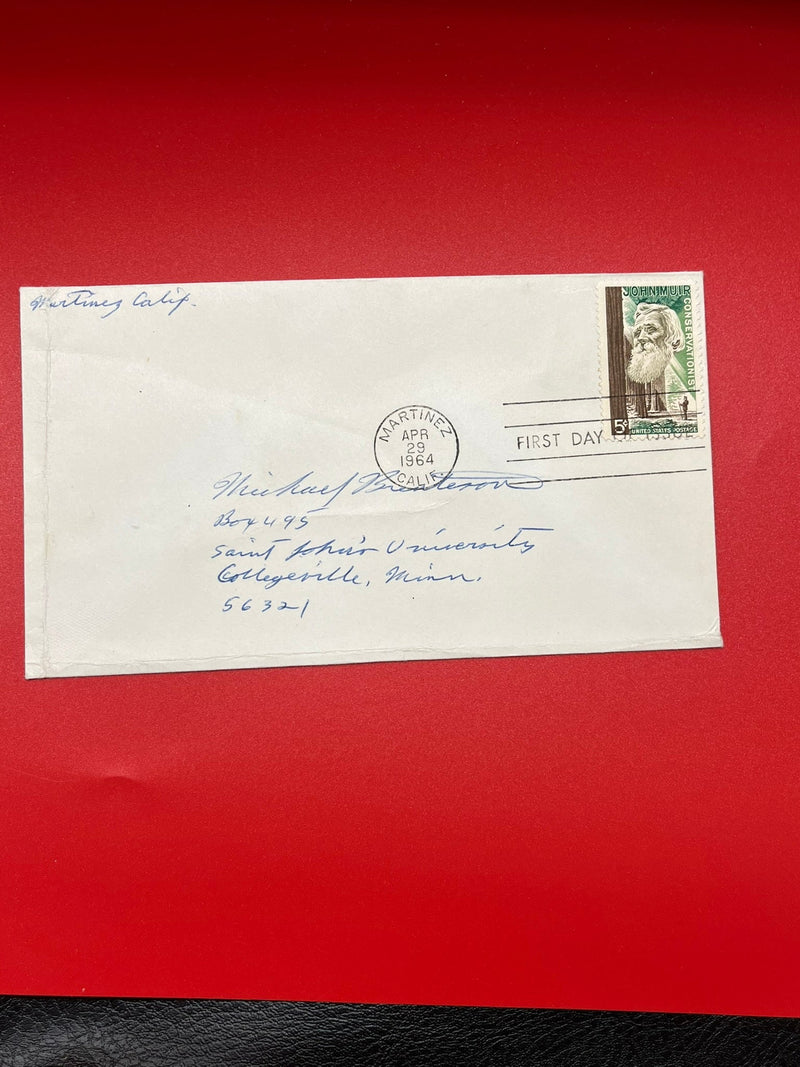 Martinez Calif.
JOHN MUIR
CONSERVATIONIST
5¢
UNITED STATES POSTAGE
MARTINEZ
APR
29
1964
CALIF.
FIRST DAY OF ISSUE
Michael
Box 495
Saint John's University
Collegeville, Minn.
56321